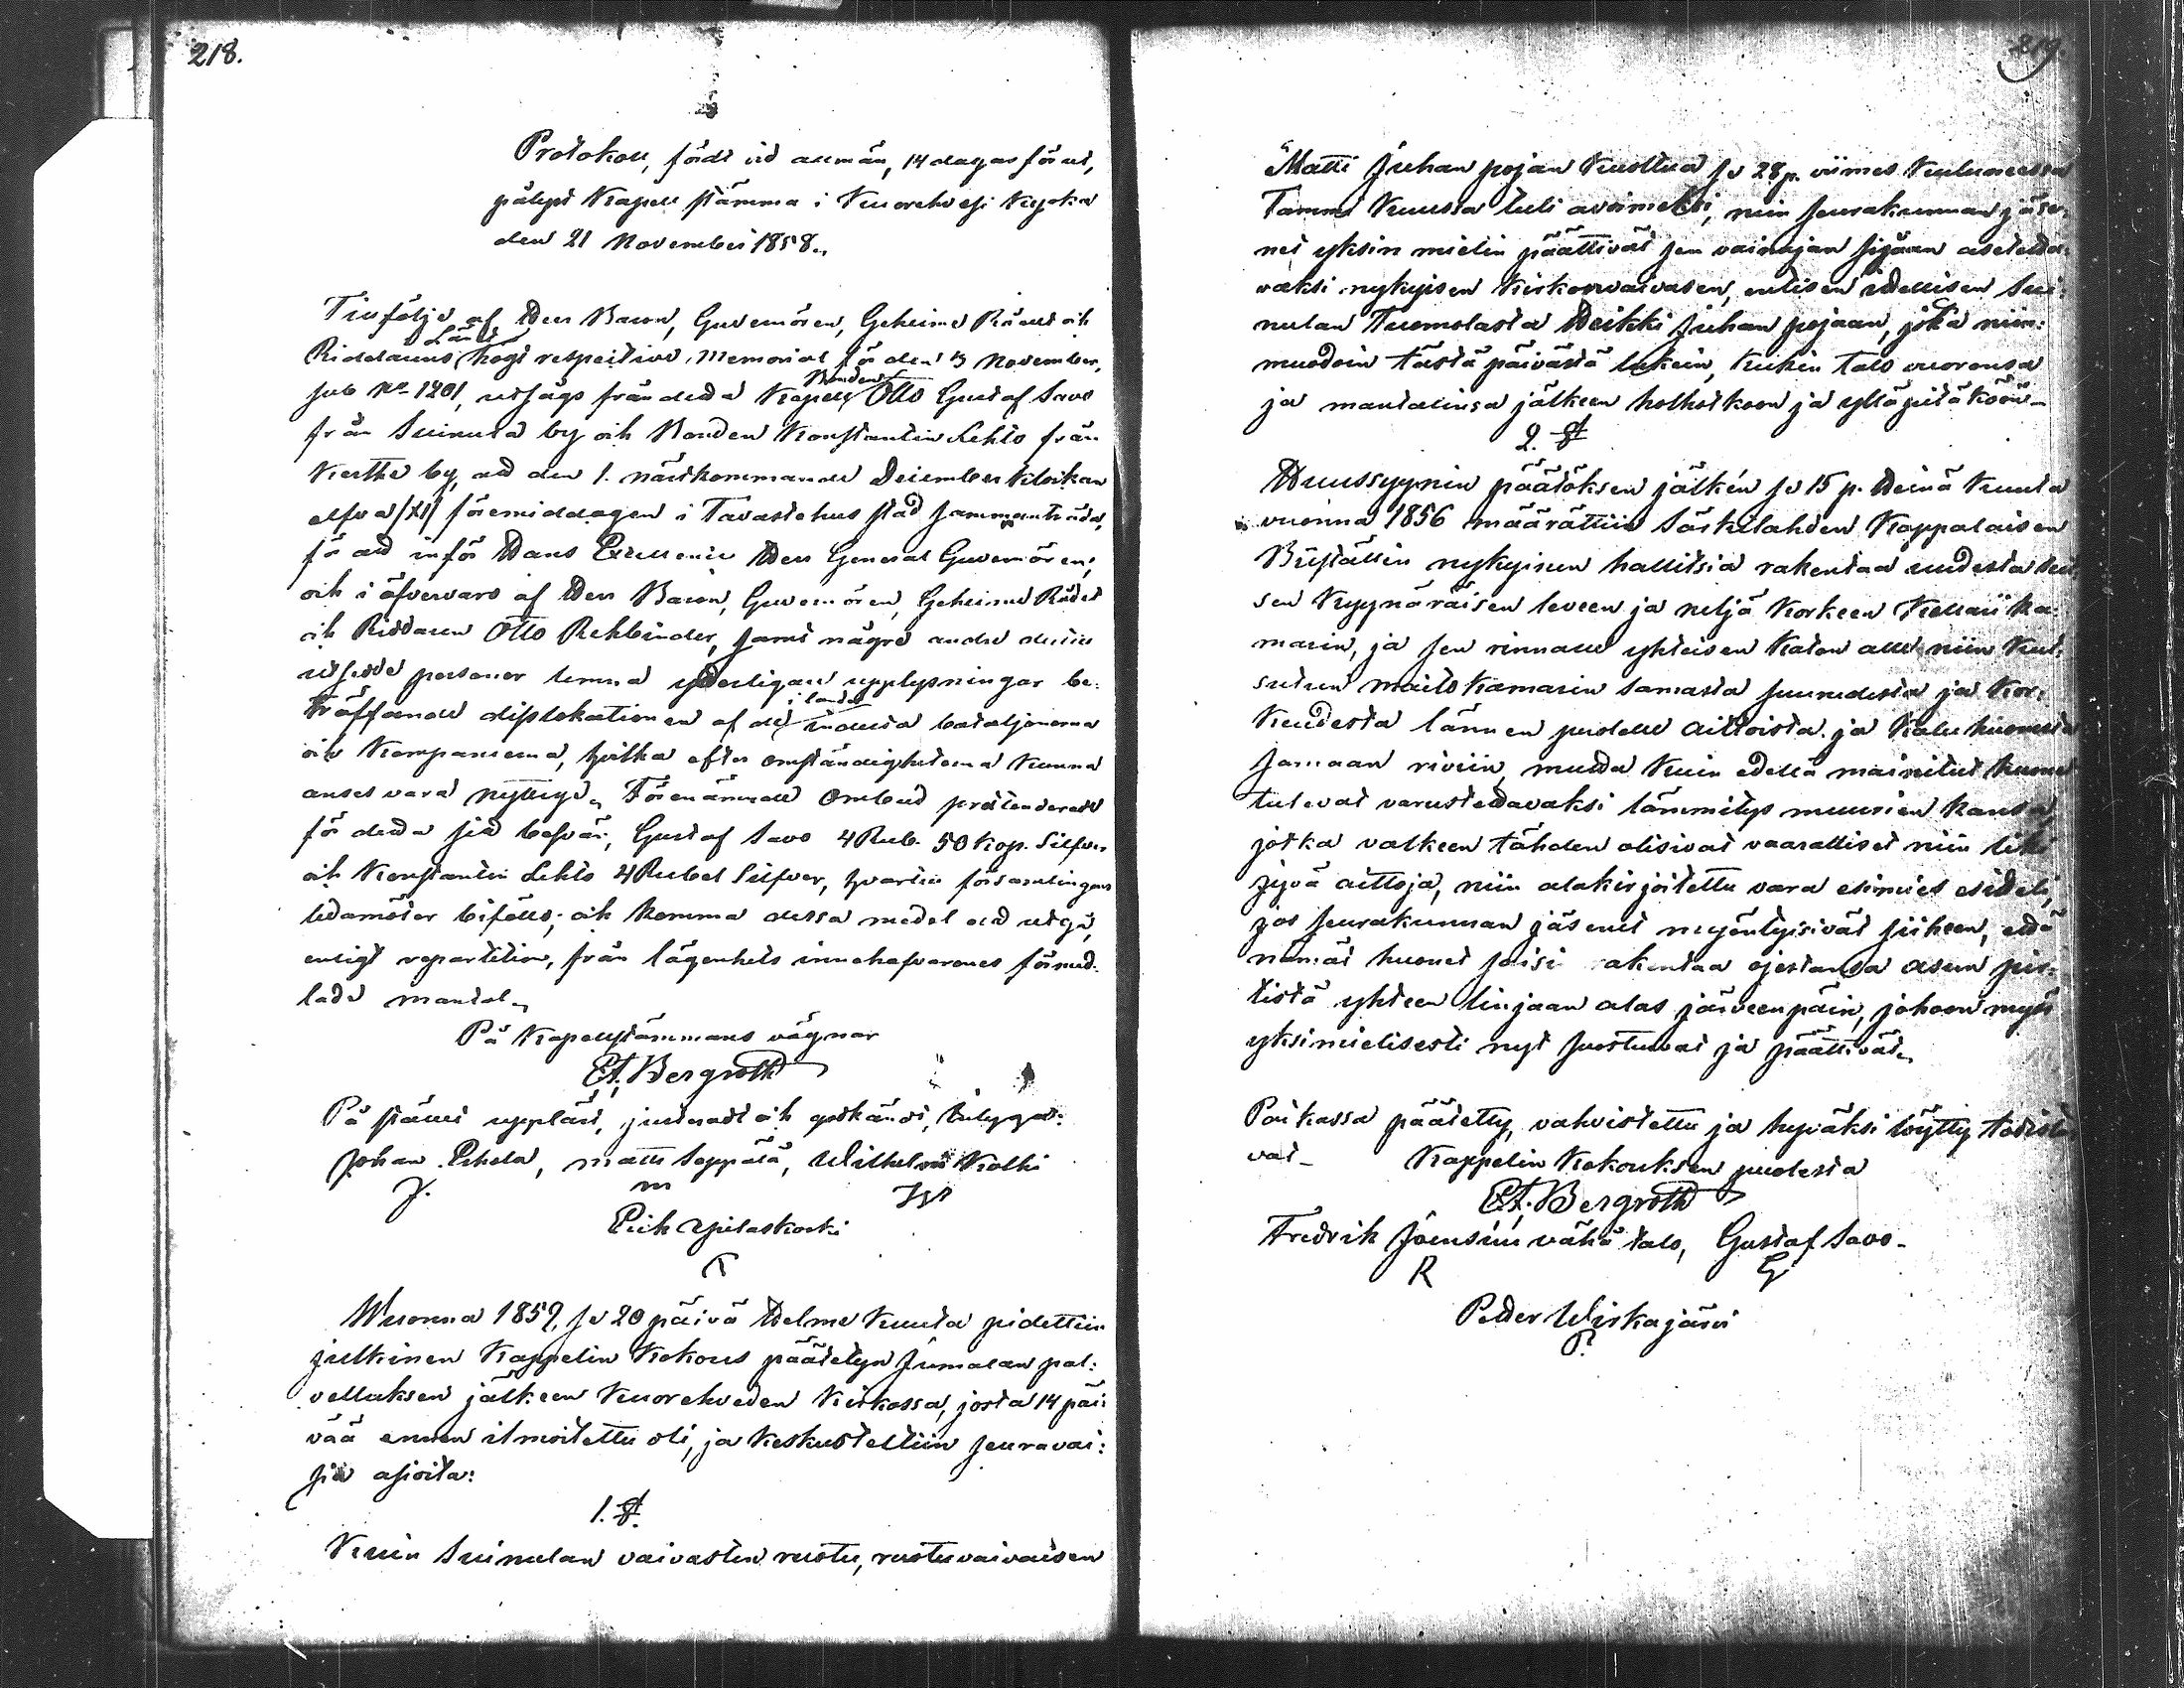 218.
Protokoll, fördt vid allmän, 14 dagar förut,
pålyst Kapell stämma i Kuorehvesi Kyrka
den 21 November 1858.,
Tillfölje af Herr Baron, Guvernören, Geheime Rådets och
Riddarens högt respective Memorial för den 13 November,
sub No 1201, utsågs från detta Kapell Bonden Otto Gustaf Savo
från Suinula by och Bonden Konstantin Lehto från
Kerthe by, att den 1. nästkommande December Klockan
elfva /XI/ förmiddagen i Tavastehus stad sammanträda,
för att inför Hans Excellence Herr General Guvernören,
och i öfvervaro af Herr Baron, Guvernören, Geheime Rådet
och Riddaren Otto Rehbinder, samt någre andre dertill
utsedde personer lemna ytterligare upplysningar be:
träffande disslokationen af de i landet indelta bataljonerna
och Kompanierna, hvilka efter omständigheterna kunna
anses vara nyttige. Förenämnde Ombud pretenderade
för detta sitt besvär, Gustaf Savo 4 Rub. 50 Kop. Silfver
och Konstantin Lehto 4 Rubel Silfver, hvartill församlingens
ledamöter biföllo; och komma dessa medel att utgå,
enligt repartition, från lägenhets innehafvarenes förmed:
lade mantal.
På Kapellstämmans vägnar
Et. Bergroth
På stället uppläst, justeradt och godkändt, betyga:
Johan Pihela, Matts Seppälä, Wilhelm Kolhi
J. m
Erik Ypiläskoski
Wuonna 1859, se 20 päivä Helme Kuuta pidettiin
julkinen Kappelin Kokous päätetyn Jumalan pal:
velluksen jälkeen Kuorehveden Kirkossa, josta 14 päi:
vää ennen ilmoitettu oli, ja keskusteltiin seuravai:
sia asioita:
1. §.
Kuin Suinulan vaivasten ruotu, ruotuvaivaisen
219.
Matti Juhan pojan Kuoltua se 28 p. viimes Kuluneessa
Tammi Kuussa tuli avoimeksi, niin seurakunnan jäse:
net yksin mielin päättivät sen vainajan sijaan asetetta:
vaksi nykyisen Kirkonvaivasen, entisen itellisen Sui:
nulan Tuomolasta Heikki Juhan pojaan, jota niin:
muodoin tästä päivästä lukein, kukin talo vuoronsa
ja mantalinsa jälkeen holhotkoon ja ylläpitäköön.
2. §
Huussyynin päätöksen jälkén se 15 p. Heinä Kuuta
vuonna 1856 määrättiin Säskilahden Kappalaisen
Büställin nykyisen hallitsia rakentaa uudesta
sen Kyynäräisen leveen ja neljä korkeen Kellari ka:
marin, ja sen rinnalle yhteisen Katon alle niin kut:
sutun maito kamarin samasta suuruudesta ja kor:
keudesta lännen puolelle aittoista ja Kalu huonesta
samaan riviin, mutta kuin edellä mainitut huonet
tulevat varustettavaksi lämmitys muurien kansa,
jotka valkeen tähden olisivat vaaralliset niin liki
jyvä aittoja, niin alakirjoitettu vara esimies esitteli,
jos seurakunnan jäsenet myöntyisivät siihen, että
nämät huonet saisi rakentaa ojestansa asun pir:
tistä yhteen linjaan alas järveenpäin, johoon myös
yksimielisesti nyt suostuivat ja päättivät.
Paikassa päätetty, vahvistettu ja hyväksi löytty todista:
vat. Kappelin Kokouksen puolesta
Et. Bergroth
Fredrik Joensuu vähä talo, Gustaf Savo.
R G
Petter Wirkajärvi
P.